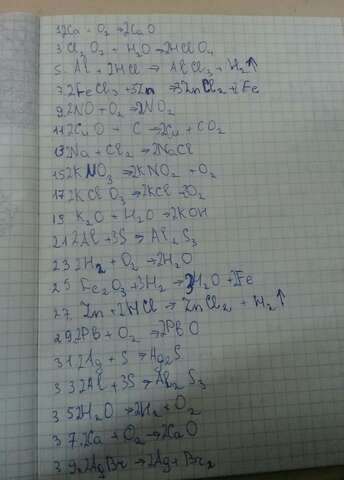 1 2Ca + O₂ → 2CaO
3 Cl₂O₇ + H₂O → 2HClO₄
5. Al + 2HCl → AlCl₃ + H₂↑
7. 2FeCl₃ + 3Zn → 3ZnCl₂ + 2Fe
9. 2NO + O₂ → 2NO₂
11 2CuO + C → 2Cu + CO₂
13 2Na + Cl₂ → 2NaCl
15 2KNO₃ → 2KNO₂ + O₂
17 2KClO₃ → 2KCl + 3O₂
19 K₂O + H₂O → 2KOH
21 2Al + 3S → Al₂S₃
23 2H₂ + O₂ → 2H₂O
25 Fe₂O₃ + 3H₂ → 3H₂O + 2Fe
27 Zn + 2HCl → ZnCl₂ + H₂↑
29. 2PB + O₂ → 2PBO
31 2Ag + S → Ag₂S
33 2Al + 3S → Al₂S₃
35 2H₂O → 2H₂ + O₂
37. 2Ca + O₂ → 2CaO
39. 2AgBr → 2Ag + Br₂